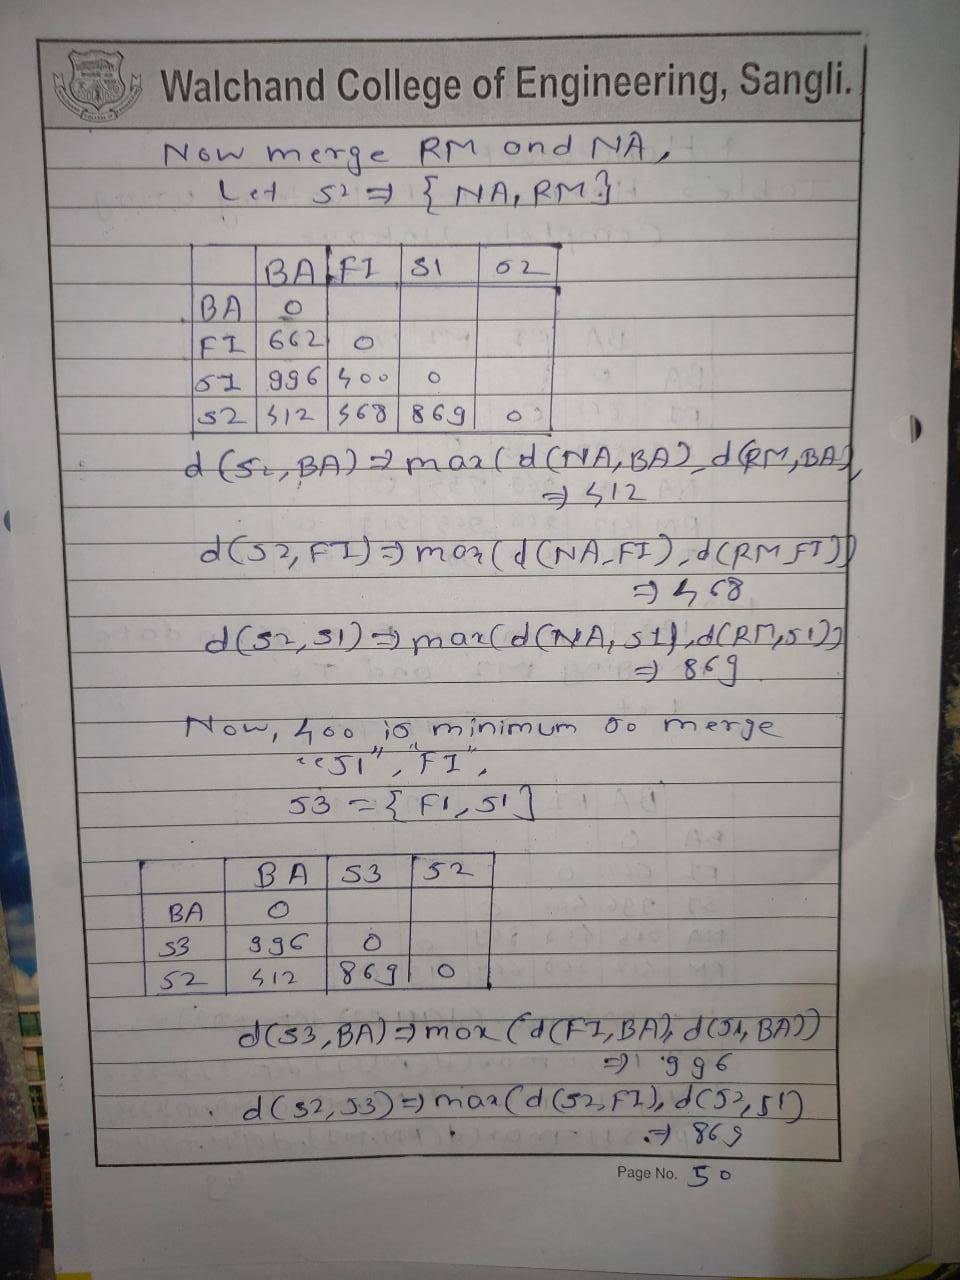 Walchand College of Engineering, Sangli.
Now merge RM and NA,
Let S2 ⇒ {NA, RM}
BA FI S1 S2
BA 0
FI 662 0
S1 996 400 0
S2 412 468 869 0
d(S2, BA) ⇒ max(d(NA, BA), d(RM, BA)
⇒ 412
d(S2, FI) ⇒ max(d(NA, FI), d(RM FI))
⇒ 468
d(S2, S1) ⇒ max(d(NA, S1), d(RM, S1))
⇒ 869
Now, 400 is minimum so merge
"S1", "FI",
S3 = {FI, S1}
BA S3 S2
BA 0
S3 996 0
S2 412 869 0
d(S3, BA) ⇒ max(d(FI, BA), d(S1, BA))
⇒ 996
d(S2, S3) ⇒ max(d(S2, FI), d(S2, S1)
⇒ 869
Page No. 50